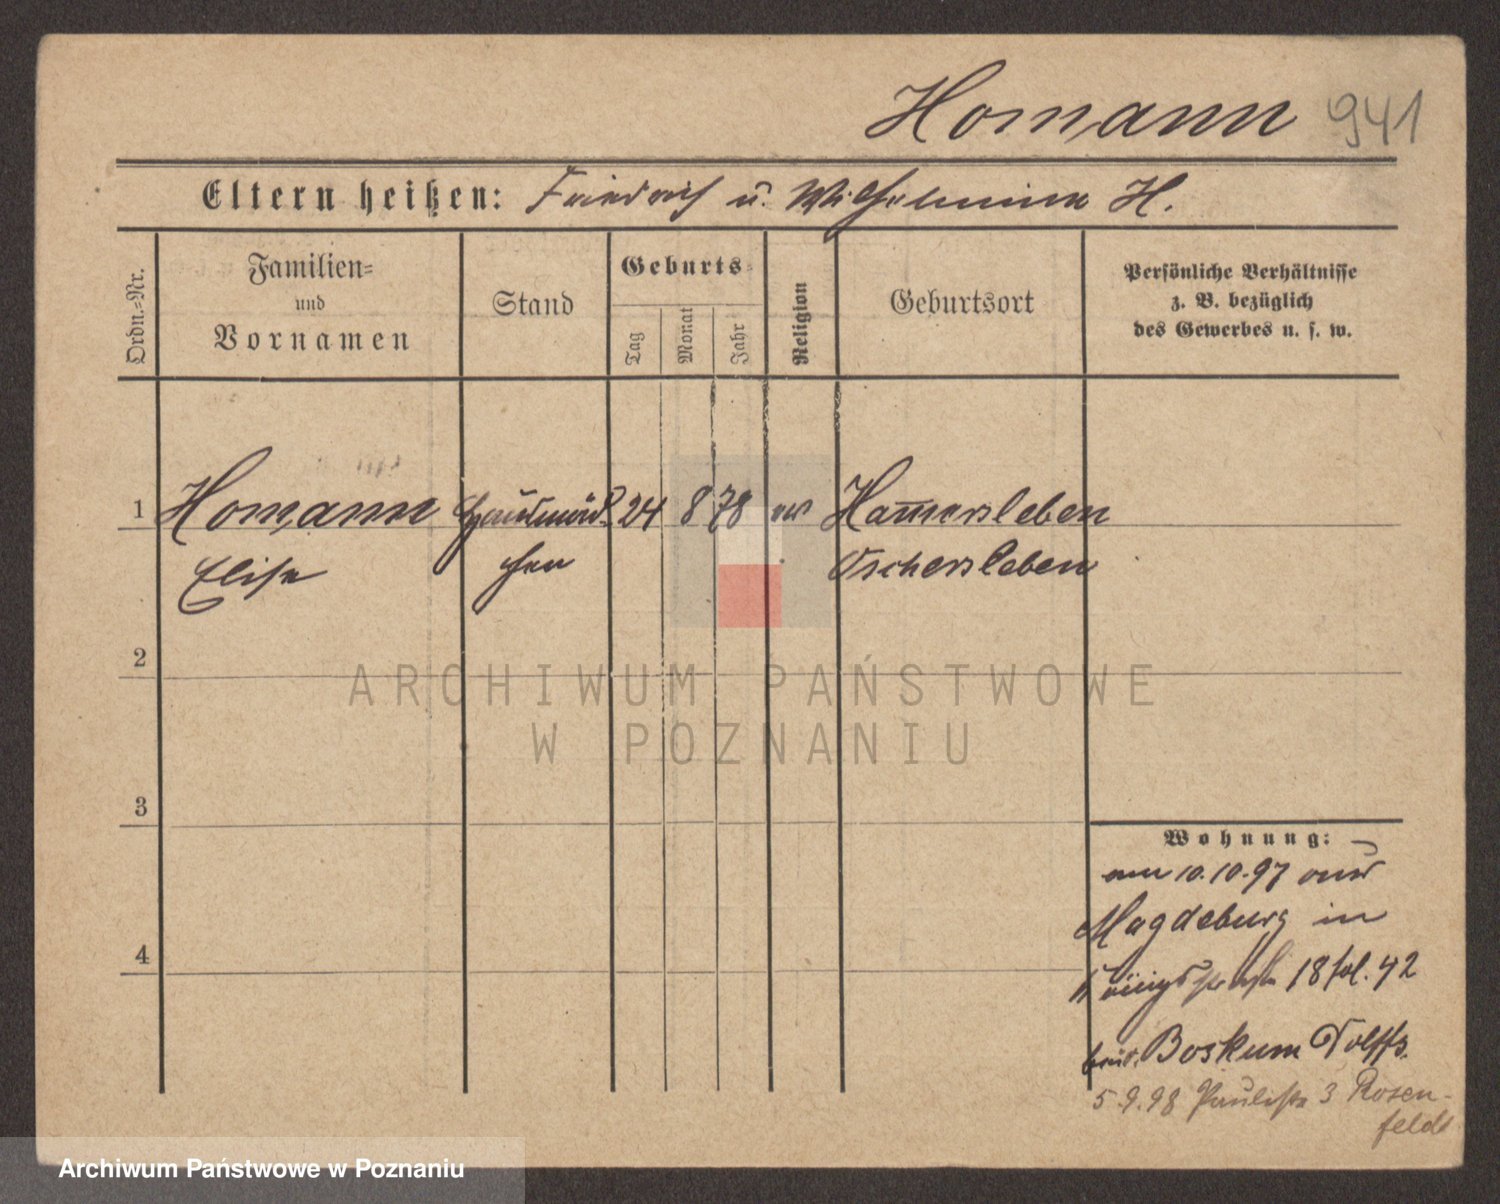 Homann 941
Eltern heißen: Friedrich u. Wilhelmine H.
Ordn.-Nr.
Familien-
und
Vornamen
Stand
Geburts-
Tag
Monat
Jahr
Religion
Geburtsort
Persönliche Verhältnisse
z. B. bezüglich
des Gewerbes u. s. w.
1 Homann Hausmäd- 24 8 78 ev Ham̅ersleben
Elise chen Oschersleben
2
3
4
Wohnung:
am 10.10.97 aus
Magdeburg in
Königsstraße 18 fol. 42
bei Boskum
5.9.98 Paulistr 3 Rosen-
feldt
ARCHIWUM PAŃSTWOWE
W POZNANIU
Archiwum Państwowe w Poznaniu